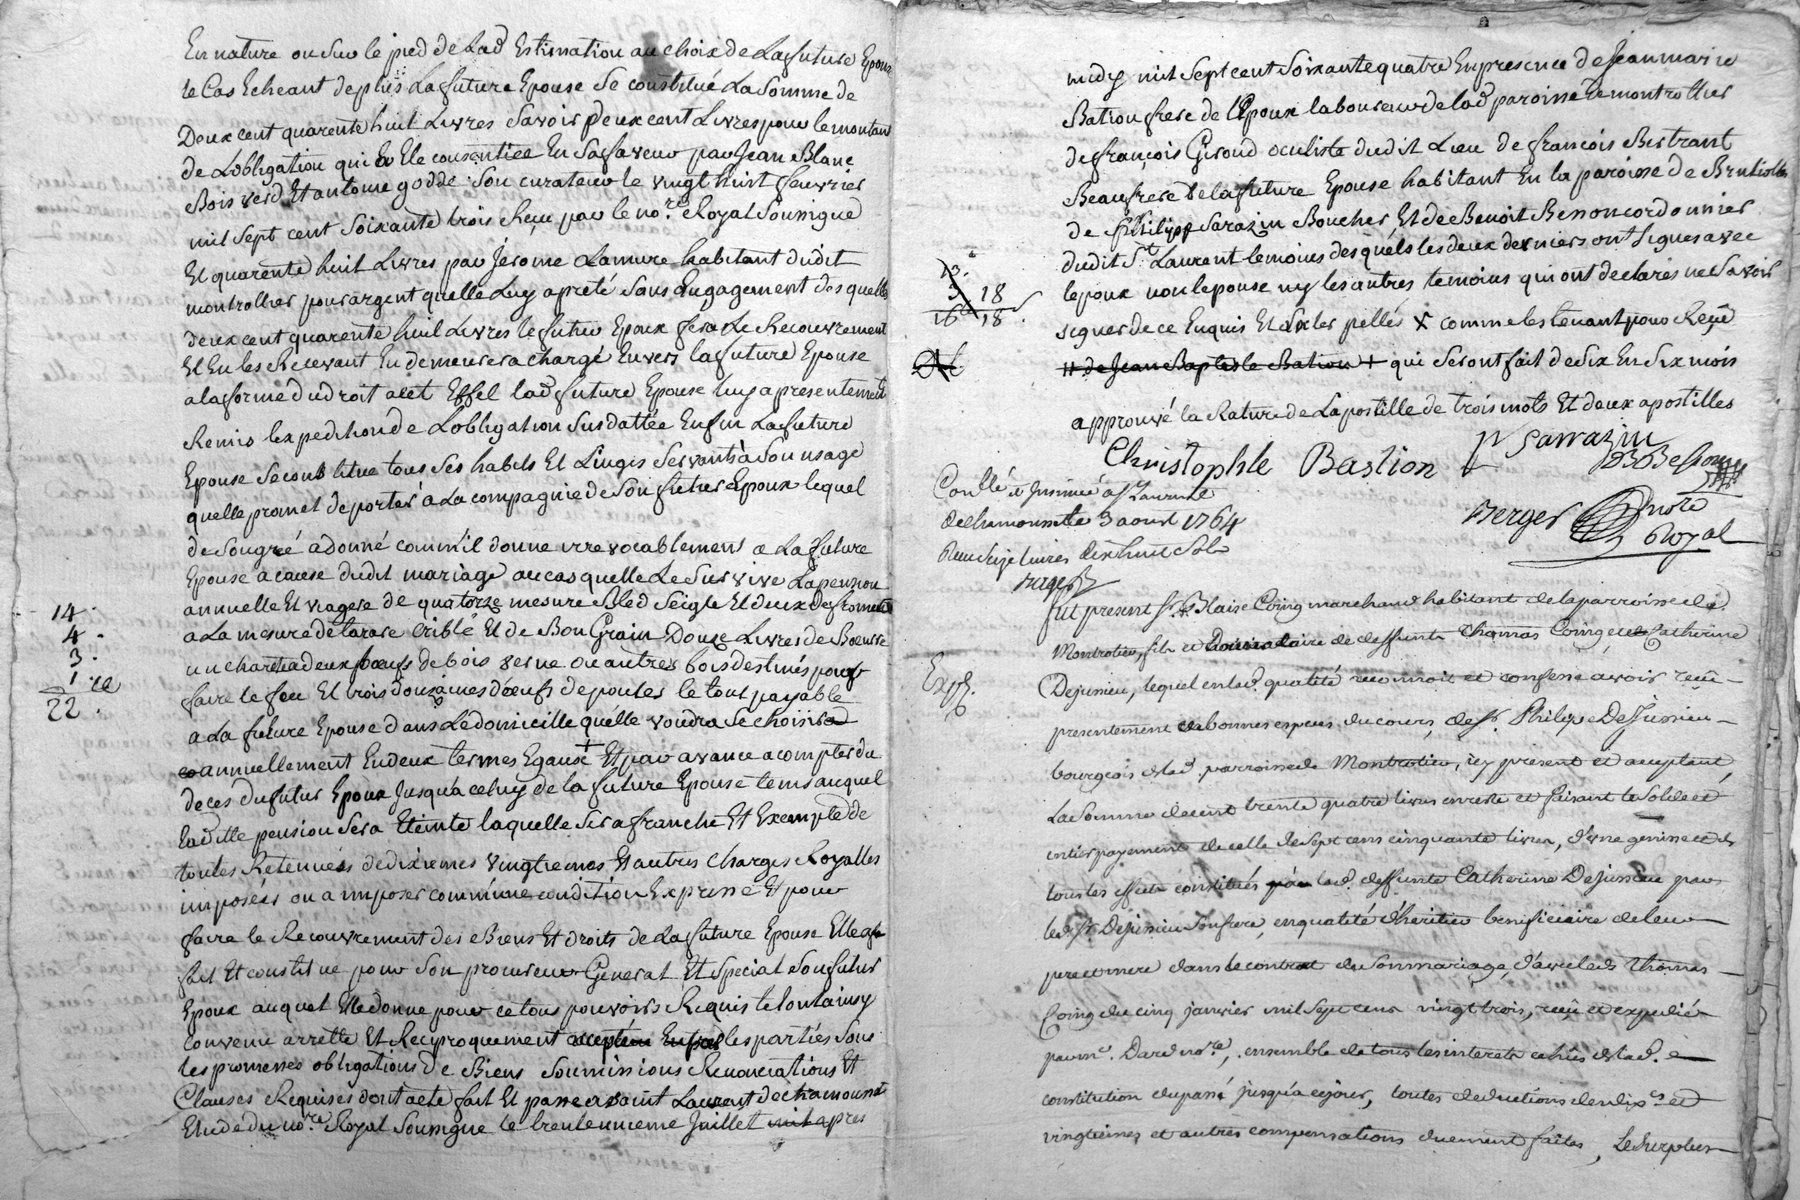 En nature ou sur le pied de Lad Estimation au choix de La future Epouse
le Cas Echeant de plus La future Epouse Se constitué La Somme de
Deux cent quarente huit Livres Savoir Deux cent Livres pour le montant
de Lobligation qui a Ete consentiee En Sa faveur par Jean Blanc
Bois verd Et antoine godde Son curateur le vingt huit feuvrier
mil Sept cent Soixante trois Reçu par le no.re Royal Soussigné
Et quarente huit Livres par Jérome Lamure habitant dudit
montrottier pour argent quelle Luy a preté Sans Engagement des quelles
deux cent quarente huit Livres le futur Epoux fera Le Recouvrement
Et En les Recevant En demeurera chargé Envers la future Epouse
a la forme du droit a cet Effet lad future Epouse luy a presentement
Remis Lexpedition de Lobligation Susdattée Enfin La future
Epouse Se constitue tous Ses habits Et Linges Servants à Son usage
quelle promet de porter à La compagnie de Son futur Epoux lequel
de Son gré a donné comm'il donne irrevocablement a La future
Epouse a cause dudit mariage au cas quelle Le Survive La pension
annuelle Et viagere de quatorze mesure Bled Seigle Et deux de froment
a La mesure de tarare criblé Et de Bon Grain Douze Livres de Beurre
un char a deux bœufs de bois verne ou autres bois destinés pour
faire le feu Et trois douzaines d'œufs de poules le tout payable
a La future Epouse dans Le domicille qu'elle voudra Se choisir
annuellement En deux termes Egaux + Et par avance a compter du
deces du futur Epoux Jusqu'a celuy de la future Epouse tems auquel
Laditte pension Sera Eteinte laquelle Sera franche Et Exempte de
toutes Retenues de dixiemes vingtiemes Et autres charges Royalles
imposées ou a imposer comm'une condition Expresse Et pour
faire le Recouvrement des Biens Et droits de La future Epouse Elle a
fait Et constitue pour Son procureur General Et Special Son futur
Epoux auquel Elle donne pour ce tous pouvoirs Requis le tout ainsy
convenu arretté Et Reciproquement accepté Entre les parties Sous
les promesses obligations de Biens Soumissions Renonciations Et
Clauses Requises dont acte fait Et passé a Saint Laurent de chamousset
Etude du no.re Royal Soussigné le trente unieme Juillet apres
14.
4.
3.
1.
22.
midy mil Sept cent Soixante quatre En presence de Jean marie
Bation frere de l'Epoux laboureur de lad paroisse de montrottier
de françois Giroud oculiste dudit Lieu de françois Bertrant
Beaufrere de la future Epouse habitant En la paroisse de Brulliolles
de Philipp Sarazin Boucher Et de Benoit Besson cordonnier
dudit St Laurent temoins desquels les deux derniers ont Signés avec
lepoux non lepouse ny les autres temoins qui ont declarés ne Savoir
signer de ce Enquis Et Interpellés X comme les tenant pour Reçu
++ de Jean Baptiste Bation + qui Seront fait de Six En Six mois
approuvé la Rature de Lapostille de trois mots Et deux apostilles
13.
3 18
16 18
Christophle Bastion
P Sarrazin
B Besson
Berger note
Royal
Conllé et Insinué a St Laurent
de chamousset le 3 aout 1764
Reçu Seize Livres dix huit Sols
Berger
Exp.
fut present Sr. Blaise Coing marchand habitant de la parroisse de
Montrotier, fils et donnataire de deffunts Thomas Coing, et Catherine
Dejussieu, lequel en lad. qualité reconnoit et confesse avoir reçu
presentement en bonnes especes du cours, de Sr. Philipe Dejussieu
bourgeois de lad. parroisse de Montrotier, icy present et acceptant,
La Somme de cent trente quatre livres en reste et faisant le Solde et
entier payement de celle de Sept cens cinquante livres, d'une genisse et de
tous les effets constitués par lad. deffunte Catherine Dejussieu par
led. Sr. Dejussieu Son frere, en qualité d'heritier beneficiaire de leur
pere et mere dans le contrat de Son mariage, d'avec led. Thomas
Coing du cinq janvier mil Sept cens vingt trois, reçu et expedié
par me. Dard no.re, ensemble de tous les interets echus de lad.
constitution du passé jusqu'a ce jour, toutes deductions de dix.es et
vingtiemes et autres compensations duement faites, Le Surplus